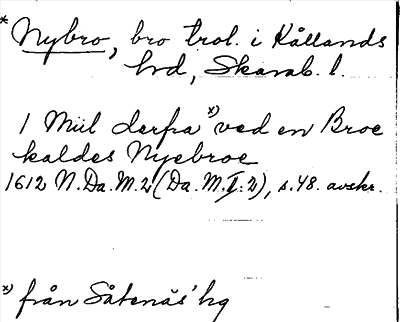 * Nybro, bro trol. i Kållands
hd, Skarab. l.
1 Miil derfra x) ved en Broe
kaldes Nyebroe
1612 N.Da.M.2 (Da.M.II:2), s.48. avskr.
x) från Såtenäs' hg